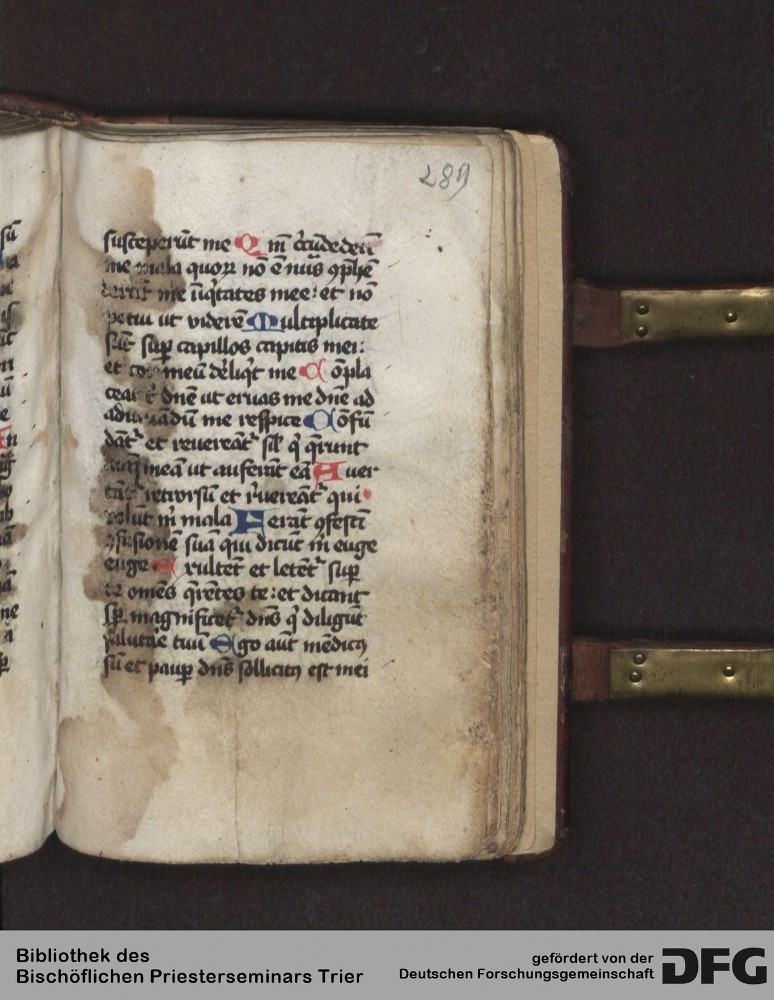 289
susceperūt me Qm̄ circūdederūt
me mala quoꝝ nō ē nūs ꝯp̄hē
me īiq̇tates mee: et nō
potui ut viderē Multiplicate
sūt sup̱ capillos capitis mei:
et cor meū dēliq̇t me Cōpla
ceat᷑ dn̄e ut eruas me dn̄e ad
adiuuādū me respice Cōfū
dāt᷑ et reuereāt᷑ sil̄ q̇ q̄runt
meā ut auferāt eā Auer
tāt᷑ retrorsū et r̄uereāt᷑ qui
volūt m̄ mala Ferāt ꝯfestī
ꝯfusionē suā qui dicūt m̄ euge
euge Exultēt et letēt᷑ sup̱
te omēs q̄rētes te: et dicant
sp̱ magnificet᷑ dn̄s q̇ diligūt
salutare tuū Ego aūt mēdicꝰ
sū et paup̱ dn̄s sollicitꝰ est mei
Bibliothek des
Bischöflichen Priesterseminars Trier
gefördert von der
Deutschen Forschungsgemeinschaft DFG